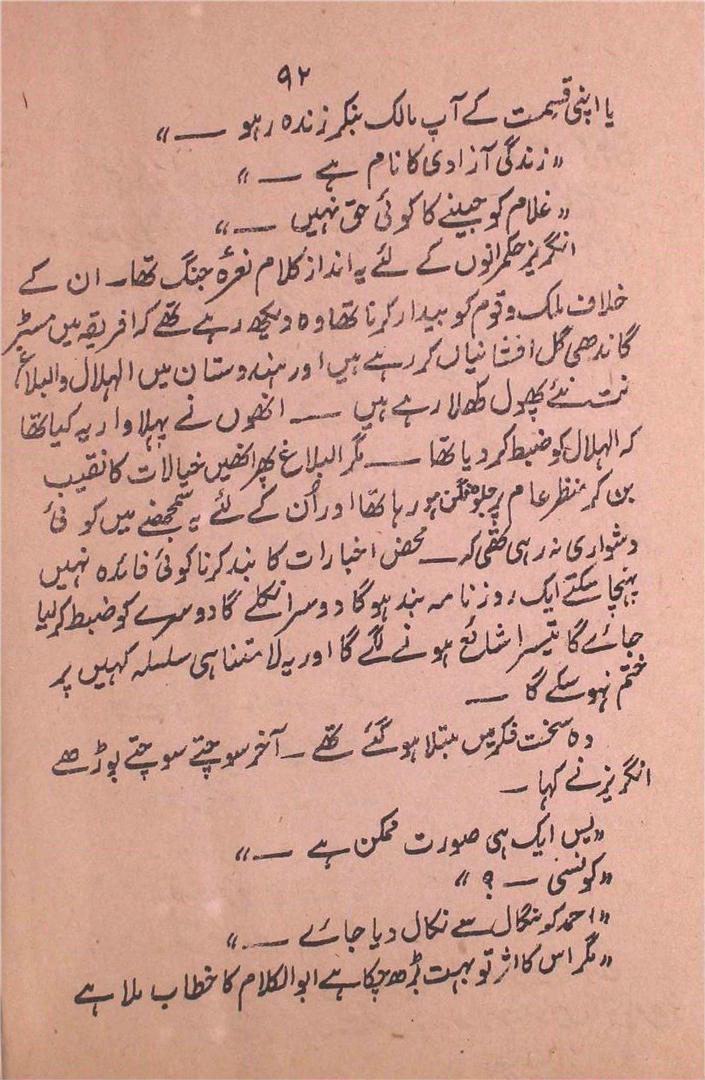 ۹۲
یا اپنی قسمت کے آپ مالک بنکر زندہ رہو ــــ"
"زندگی آزادی کا نام ہے ــــ"
"غلام کو جینے کا کوئی حق نہیں ــــ"
انگریز حکمرانوں کے لئے یہ انداز کلام نعرۂ جنگ تھا۔ ان کے
خلاف ملک و قوم کو بیدار کرنا تھا وہ دیکھ رہے تھے کہ افریقہ میں مسٹر
گاندھی گل افشانیاں کر رہے ہیں اور ہندوستان میں الہلال والبلاغ
نت نئے پھول کھلا رہے ہیں ــــ انھوں نے پہلا وار یہ کیا تھا
کہ الہلال کو ضبط کر دیا تھا ــــ مگر البلاغ پھر انھیں خیالات کا نقیب
بن کر منظر عام پر جلوہ فگن ہو رہا تھا اور اُن کے لئے یہ سمجھنے میں کوئی
دشواری نہ رہی تھی کہ ــ محض اخبارات کا بند کرنا کوئی فائدہ نہیں
پہنچا سکتے ایک روزنامہ بند ہوگا دوسرا نکلے گا دوسرے کو ضبط کر لیا
جائے گا تیسرا شائع ہونے لگے گا اور یہ لامتناہی سلسلہ کہیں پر
ختم نہو سکے گا ــــ
وہ سخت فکر میں مبتلا ہو گئے تھے ۔ آخر سوچتے سوچتے بوڑھے
انگریز نے کہا ۔
"بس ایک ہی صورت ممکن ہے ــــ"
"کونسی ــــ ؟"
"احمد کو بنگال سے نکال دیا جائے ــــ"
"مگر اس کا اثر تو بہت بڑھ چکا ہے ابوالکلام کا خطاب ملا ہے